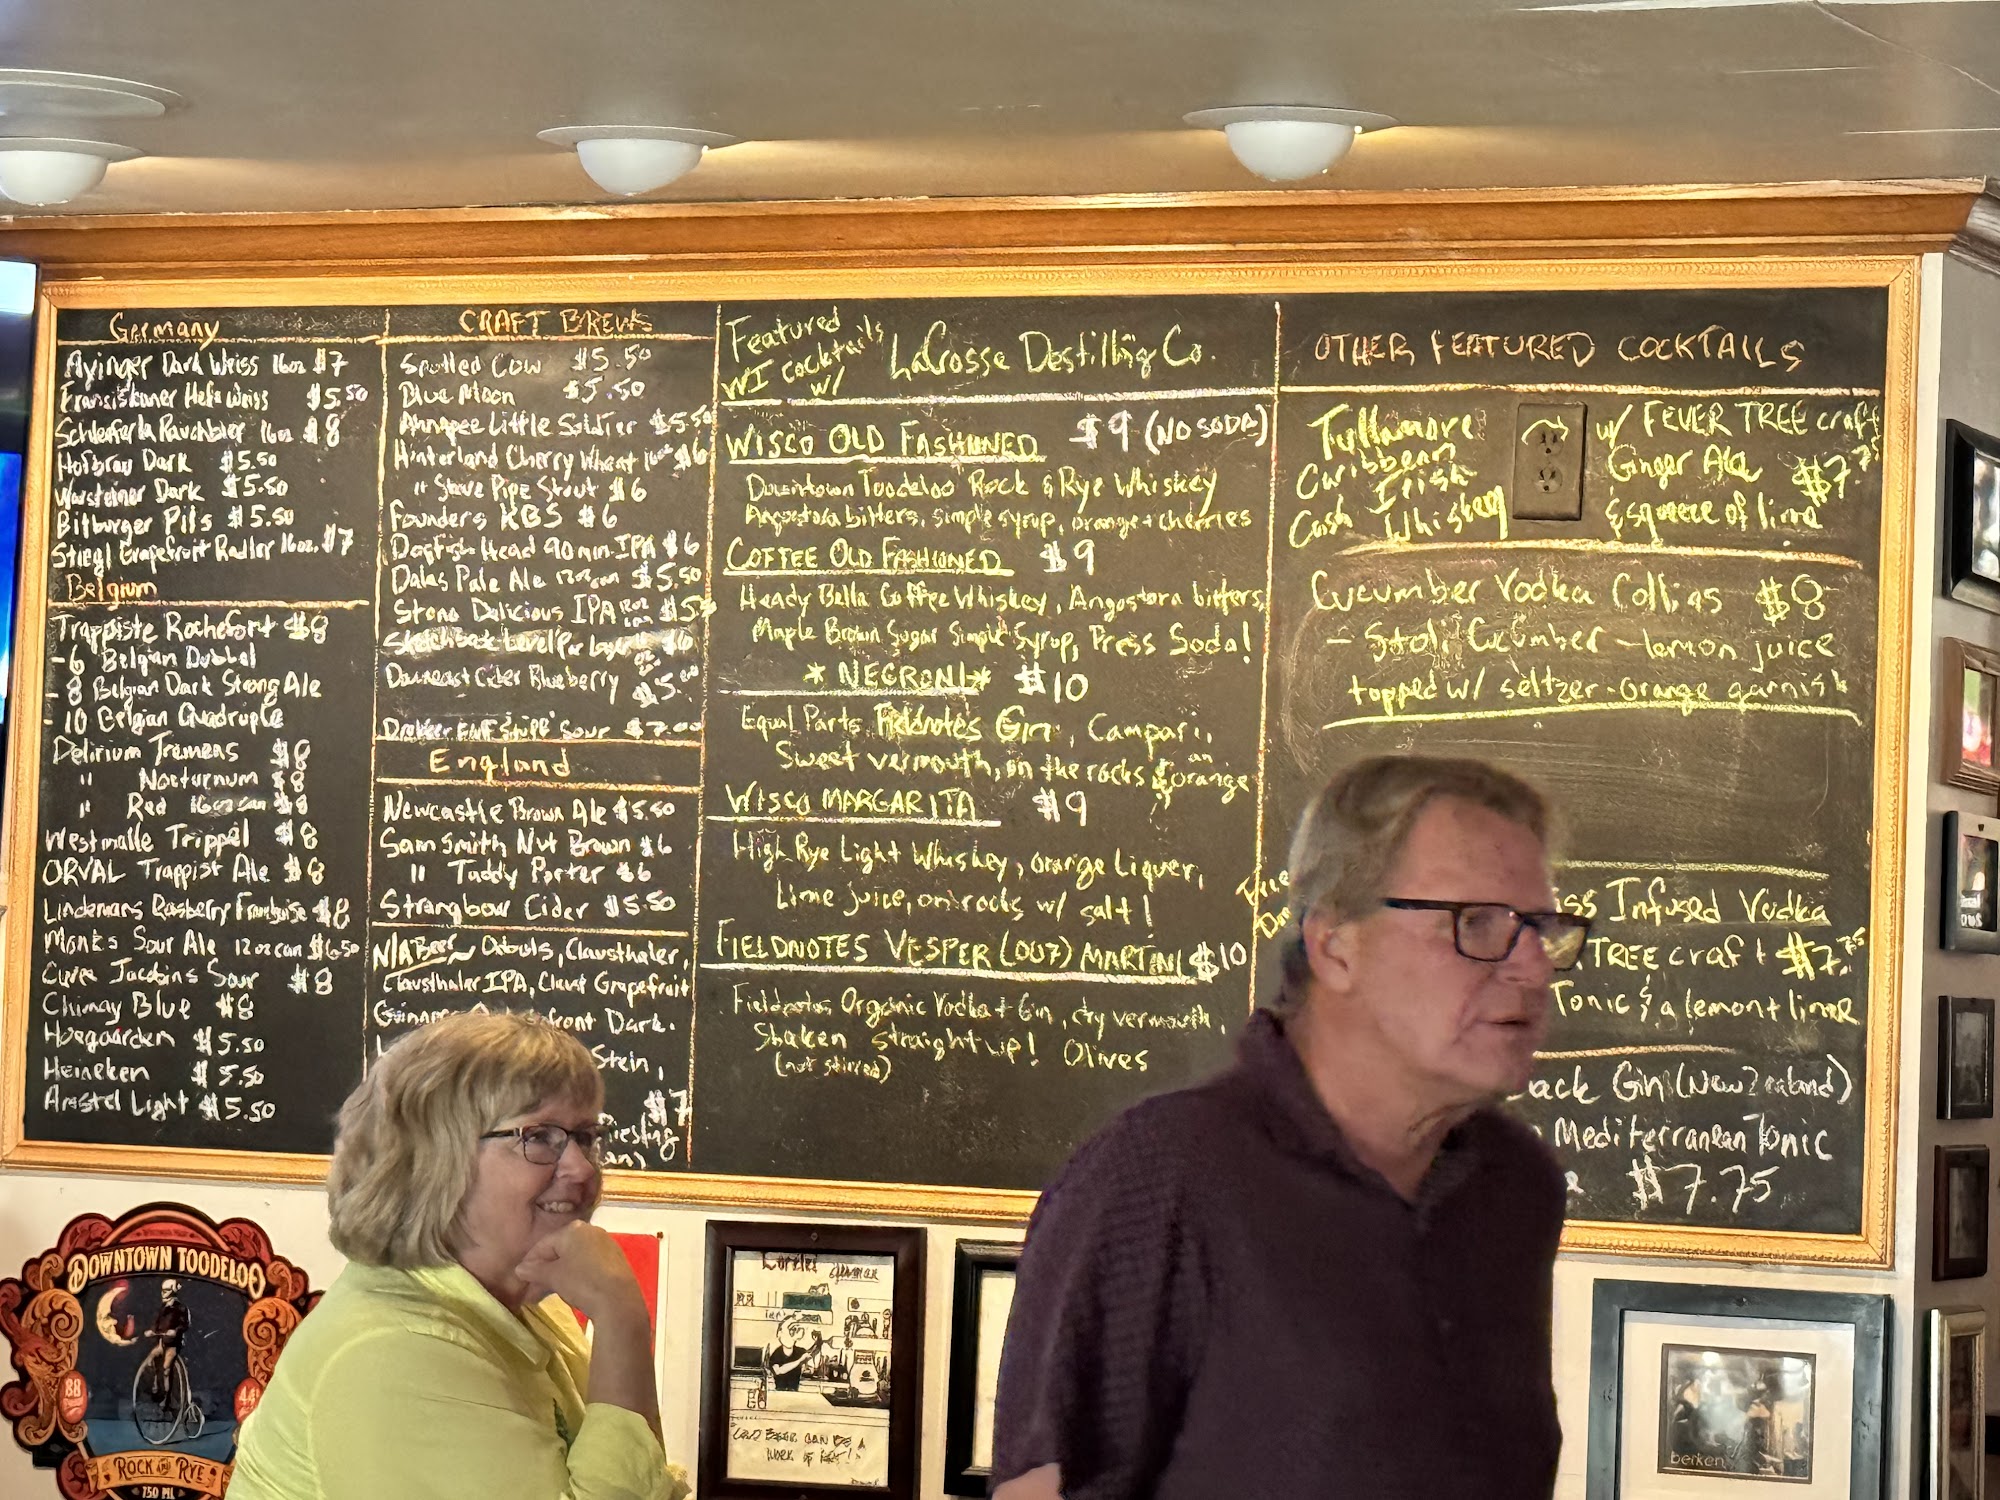 Germany
Ayinger Dark Weiss 16oz $7
Fransiskaner Hefe Weiss $5.50
Schlenferla Rauchbier 16oz $8
Hofbrau Dark $5.50
Warsteiner Dark $5.50
Bitburger Pils $5.50
Stiegl Grapefruit Radler 16oz. $7
Belgium
Trappiste Rochefort $8
-6 Belgian Dubbel
-8 Belgian Dark Strong Ale
-10 Belgian Quadruple
Delirium Tremens $8
" Nocturnum $8
" Red 16oz can $8
Westmalle Trippel $8
ORVAL Trappist Ale $8
Lindemans Rasberry $8
Monks Sour Ale 12oz can $6.50
Cuvee Jacobins Sour $8
Chimay Blue $8
Hoegaarden $5.50
Heineken $5.50
Amstel Light $5.50
CRAFT BREWS
Spotted Cow $5.50
Blue Moon $5.50
Ahnapee Little Soldier $5.50
Hinterland Cherry Wheat 16oz $6
" Stove Pipe Stout $6
Founders KBS $6
Dogfish Head 90 min. IPA $6
Dales Pale Ale 12oz can $5.50
Stone Delicious IPA 12oz can $5.50
Lager $6
Downeast Cider Blueberry $5.00
Sour $7.00
England
Newcastle Brown Ale $5.50
Sam Smith Nut Brown $6
" Taddy Porter $6
Strongbow Cider $5.50
N/A Beer~ Odouls, Clausthaler,
Clausthaler IPA, Claust Grapefruit
Dark.
Stein,
$7
Featured
WI cocktails
w/
LaCrosse Destilling Co.
WISCO OLD FASHIONED $9 (NO SODA)
Downtown Toodeloo Rock & Rye Whiskey
Angostora bitters, simple syrup, orange + cherries
COFFEE OLD FASHIONED $9
Heady Bella Coffee Whiskey, Angostora bitters,
Maple Brown Sugar Simple Syrup, Press Soda!
* NEGRONI * $10
Equal Parts Fieldnotes Gin, Campari,
Sweet vermouth, on the rocks & an orange
WISCO MARGARITA $9
High Rye Light Whiskey, orange Liquer,
Lime juice, on rocks w/ salt!
FIELDNOTES VESPER (007) MARTINI $10
Fieldnotes Organic Vodka + Gin, dry vermouth,
Shaken straight up! Olives
(not stirred)
OTHER FEATURED COCKTAILS
Tullamore
Caribbean
Cask Irish
Whiskey
w/ FEVER TREE craft
Ginger Ale $7.75
& squeeze of lime
Cucumber Vodka Collins $8
- Stoli Cucumber - lemon juice
topped w/ seltzer - orange garnish
Infused Vodka
TREE craft $7.75
Tonic & a lemon + lime
Gin (New Zealand)
Mediterranean Tonic
$7.75
DOWNTOWN TOODELOO
88
44
ROCK AND RYE
750 ML
berken